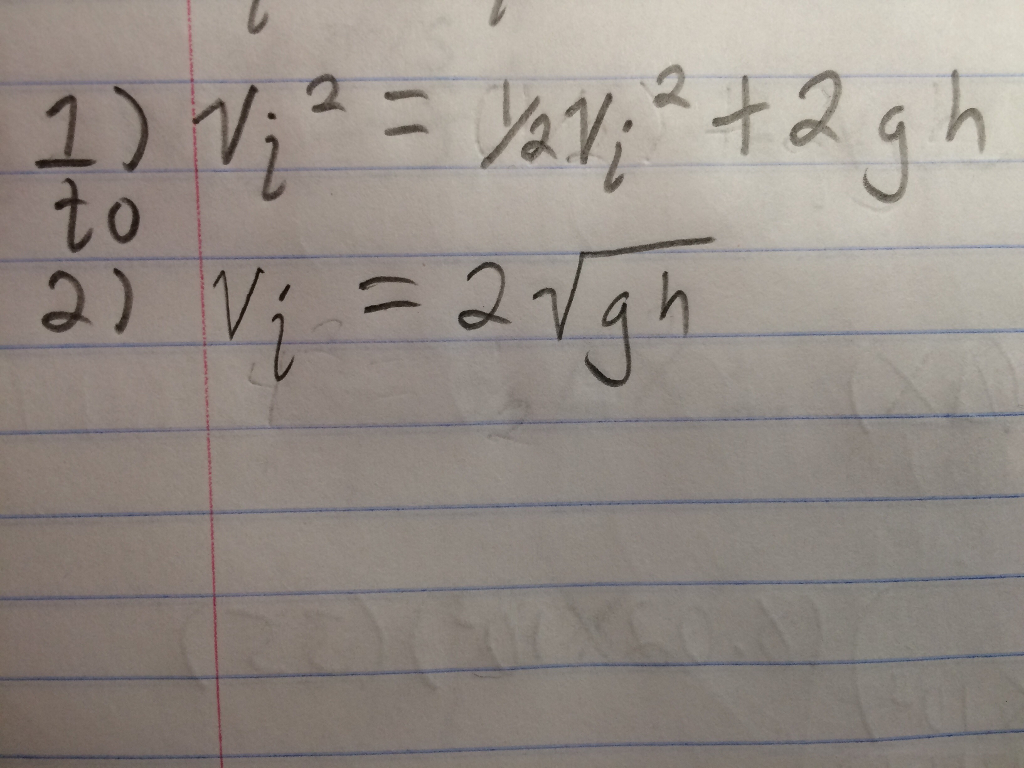 1) Vi² = ½Vi² + 2gh
to
2) Vi = 2√gh